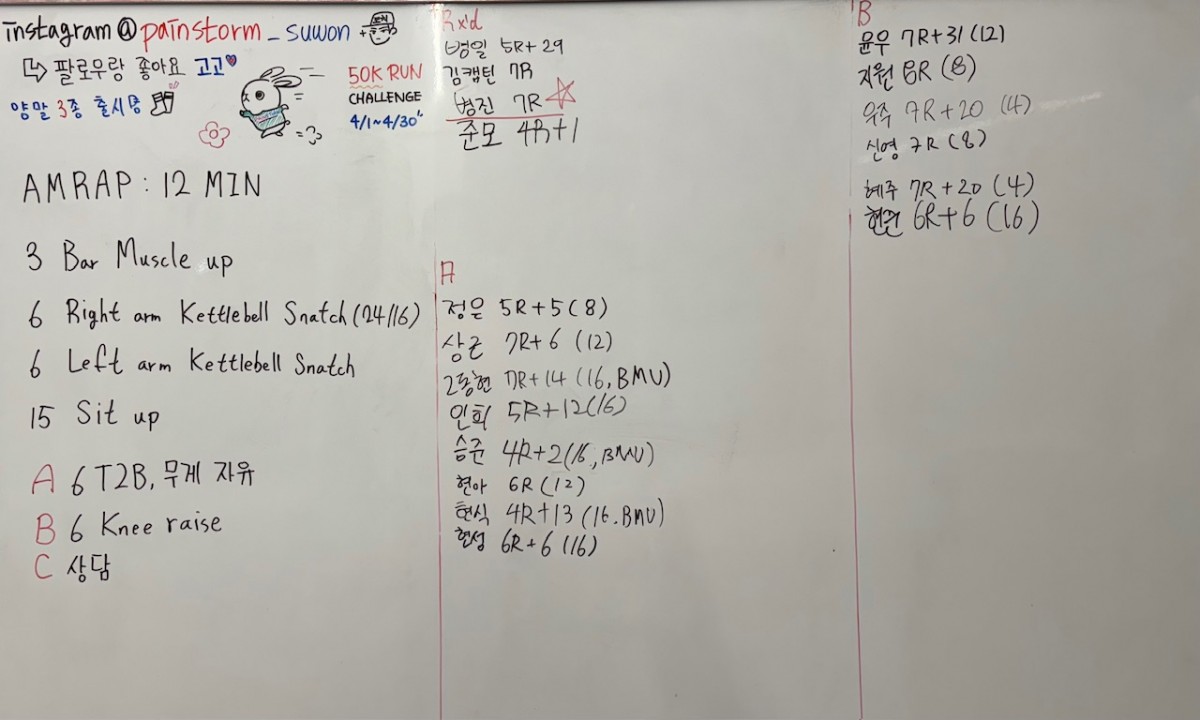 instagram@painstorm_suwon
팔로우랑 좋아요 고고
양말 3종 출시중
50K RUN
CHALLENGE
4/1~4/30
AMRAP : 12 MIN
3 Bar Muscle up
6 Right arm Kettlebell Snatch (24/16)
6 Left arm Kettlebell Snatch
15 Sit up
A 6 T2B, 무게 자유
B 6 Knee raise
C 상담
Rx'd
병일 5R+29
김캡틴 7R
병진 7R
준모 4R+1
A
정은 5R+5 (8)
상근 7R+6 (12)
2동현 7R+14 (16, BMU)
인희 5R+12 (16)
승준 4R+2 (16, BMU)
현아 6R (12)
현식 4R+13 (16. BMU)
현성 6R+6 (16)
B
윤우 7R+31 (12)
지원 8R (8)
우주 7R+20 (4)
신영 7R (8)
혜주 7R+20 (4)
현권 6R+6 (16)